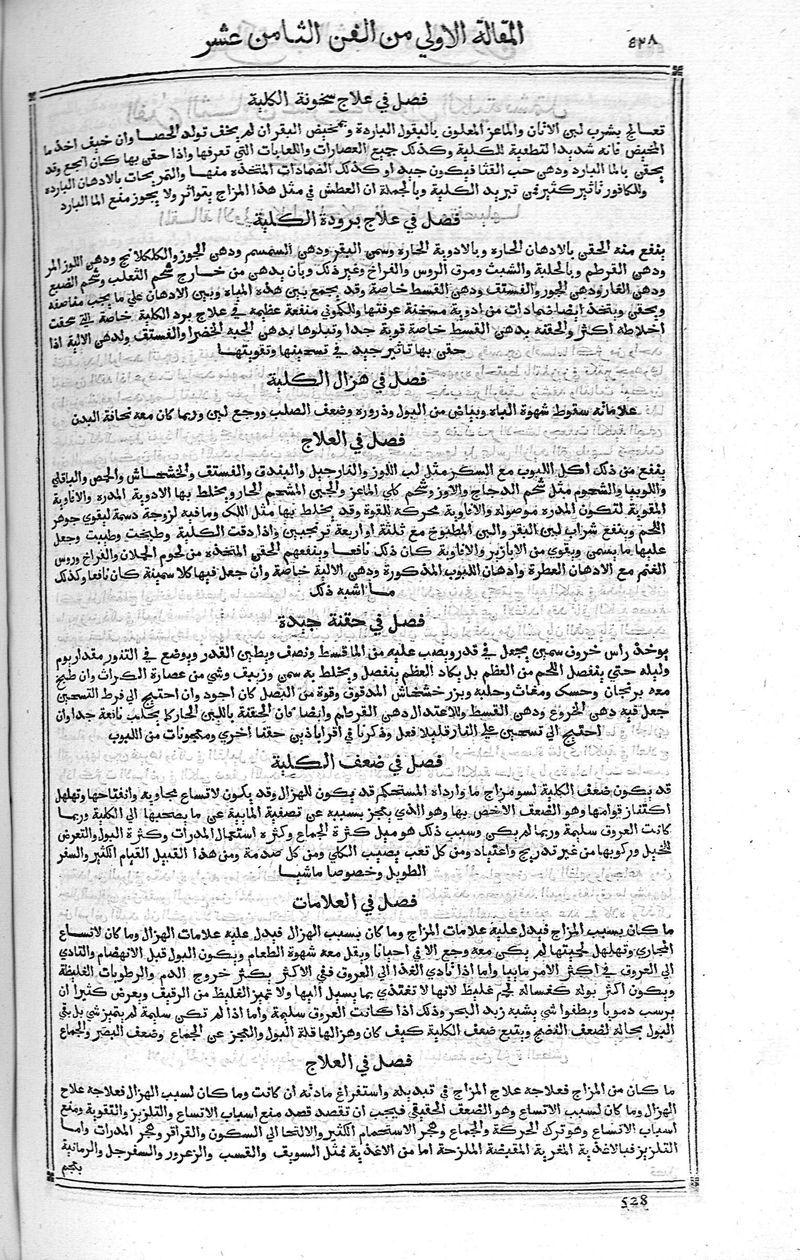 ٤٢٨
المقالة الاولي من الفن الثامن عشر
فصل في علاج سخونة الكلية
تعالج بشرب لبن الاتان والماعز المعلوف بالبقول الباردة وبمخيض البقر ان لم يخف تولد الحصا وان خيف اخذ ما
المخيض فانه شديد التطفية للكلية وكذلك جميع العصارات واللعابات التي تعرفها واذا حقن بها كان انجع وقد
يحقن بالما البارد ودهن حب القثا فيكون جيد او كذلك الضمادات المتخذه منها والتمريخات بالادهان البارده
وللكافور تاثير كثير في تبريد الكلية وبالجملة ان العطش في مثل هذا المزاج يتواتر ولا يجوز منع الما البارد
فصل في علاج برودة الكلية
ينفع منه الحقن بالادهان الحاره وبالادوية الحاره وسمن البقر ودهن السمسم ودهن الجوز والكلكلانج ودهن اللوز المر
ودهن القرطم وبالحلبة والشبث ومرق الروس والفراخ وغير ذلك وبان يدهن من خارج شحم الثعلب وشحم الضبع
ودهن الغار ودهن الجوز والفستق ودهن القسط خاصة وقد يجمع بين هذه المياه وبين الادهان علي ما يجب مفاصفة
ويحقن ويتخذ ايضا ضمادات من ادوية مسخنة عرفتها والكموني منفعة عظيمه في علاج برد الكلية خاصة الذي سحقت
اخلاطه اكثر والحقنه بدهن القسط خاصة قوية جدا ويتلوها بدهن الحبه الخضرا والفستق ولدهن الالية اذا
حقن بها تاثير جيد في تسخينها وتقويتها
فصل في هزال الكلية
علاماته سقوط شهوة الباه وبياض من البول ودروره وضعف الصلب ووجع لين وربما كان معه نحافة البدن
فصل في العلاج
ينفع من ذلك اكل اللبوب مع السكر مثل لب اللوز والنارجيل والبندق والفستق والخشخاش والحمص والباقلي
واللوبيا والشحوم مثل شحم الدجاج والاوز وشحم كلي الماعز والجبن المشحم الحار ويخلط بها الادوية المدره والافاوية
المقوية لتكون المدره موصوله والافاوية محركه للقوة وقد يخلط بها مثل اللك وما فيه لزوجة دسمة ليقوي جوهر
اللحم وينفع شراب لبن البقر والبن المطبوخ مع ثلثة او اربعة ترنجبين واذا دقت الكلية وطبخت وطيبت وجعل
عليها ما يسمن ويقوي من الابازير والافاوية كان ذلك نافعا وينفعهم الحقن المتخذه من لحوم الحملان والفراخ وروس
الغنم مع الادهان العطرة وادهان اللبوب المذكورة ودهن الالية خاصة وان جعل فيها كلا سمينة كان نافعا وكذلك
ما اشبه ذلك
فصل في حقنة جيدة
يوخذ راس خروف سمين يجعل في قدر ويصب عليه من الما قسط ونصف ويطين القدر ويوضع في التنور مقدار يوم
وليله حتي ينفصل اللحم من العظم بل يكاد العظم ينفصل ويخلط به سمن وزيبق وشي من عصارة الكراث وان طبخ
معه برنجان وحسك ومغاث وحلبه وبزر خشخاش المدقوق وقوة من البصل كان اجود وان احتيج الي فرط التسخين
جعل فيه دهن الخروع ودهن القسط وللاعتدال دهن القرطم وايضا كان الحقنة باللبن الحار كما يحلب نافعة جدا وان
احتيج الي تسخين علي النار قليلا فعل وذكرنا في اقراباذين حقنا اخري ومعجونات من اللبوب
فصل في ضعف الكلية
قد يكون ضعف الكلية لسو مزاج ما وارداه المستحكم قد يكون للهزال وقد يكون لاتساع مجاويه وانفتاحها وتهلهل
اكتناز قوامها وهو الضعف الاخص بها وهو الذي يعجز بسببه عن تصفية المايية عن ما يصحبها الي الكلية وربما
كانت العروق سليمة وربما لم يكن وسبب ذلك هو مثل كثرة الجماع وكثره استعمال المدرات وكثرة البول والتعرض
للخيل وركوبها من غير تدريج واعتياد ومن كل تعب يصيب الكلي ومن كل صدمة ومن هذا القبيل القيام الكثير والسفر
الطويل وخصوصا ماشيا
فصل في العلامات
ما كان بسبب المزاج فيدل عليه علامات المزاج وما كان بسبب الهزال فيدل عليه علامات الهزال وما كان لاتساع
المجاري وتهلهل لحميتها لم يكن معه وجع الا في احيانا ويقل معه شهوة الطعام ويكون البول قبل الانهضام والتادي
الي العروق في اكثر الامر مابيا واما اذا تادي الغذا الي العروق ففي الاكثر يكثر خروج الدم والرطوبات الغليظة
ويكون اكثر بوله كغسالة لحم غليظ لانها لا تغتذي بما يسيل اليها ولا تميز الغليظ من الرقيق ويعرض كثيرا ان
يرسب دمويا ويطفوا شي يشبه زبد البحر وذلك اذا كانت العروق سليمة واما اذا لم تكن سليمة لم يتميز شي بل بقي
البول بحاله لضعف النضج ويتبع ضعف الكلية كيف كان وهزالها قلة البول والعجز عن الجماع وضعف البصر والجماع
فصل في العلاج
ما كان من المزاج فعلاجه علاج المزاج في تبديله واستفراغ مادته ان كانت وما كان لسبب الهزال فعلاجه علاج
الهزال وما كان لسبب الاتساع وهو الضعف الحقيقي فيجب ان تقصد قصد منع اسباب الاتساع والتلزيز والتقوية ومنع
اسباب الاتساع وهو ترك الحركة والجماع وهجر الاستحمام الكثير والالتجا الي السكون والقرار وهجر المدرات واما
التلزيز فبالاغذية المغرية المقبضة الملزجة اما من الاغذية فمثل السويق والقسب والزعرور والسفرجل والرمانية
بعجم
528